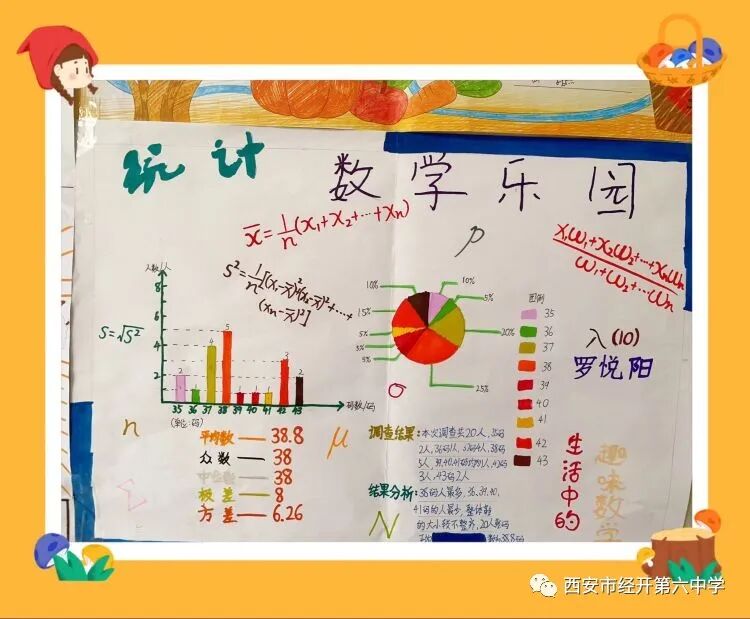 统计
数学乐园
x̄=1/n(x₁+x₂+…+xₙ)
x₁w₁+x₂w₂+…+xₙwₙ/w₁+w₂+…wₙ
S²=1/n[(x₁-x̄)²+(x₂-x̄)²+…+
(xₙ-x̄)²]
S=√S²
人数/人
8
6
4
2
2 1 4 5 1 1 1 3 2
35 36 37 38 39 40 41 42 43
码数/码
(单位:码)
10%
15%
5%
5%
5%
10%
5%
20%
25%
图例
35
36
37
38
39
40
41
42
43
ρ
σ
n
μ
Σ
N
八(10)
罗悦阳
平均数——38.8
众数——38
中位数——38
极差——8
方差——6.26
调查结果:本次调查共20人,35码
2人,36码1人,37码4人,38码
5人,39,40,41码均为1人,42码
3人,43码2人
结果分析:38码人最多,36、39、40、
41码的人最少,整体鞋
的大小较不整齐,20人鞋码
数为38.8码
生活中的
趣味数学
西安市经开第六中学